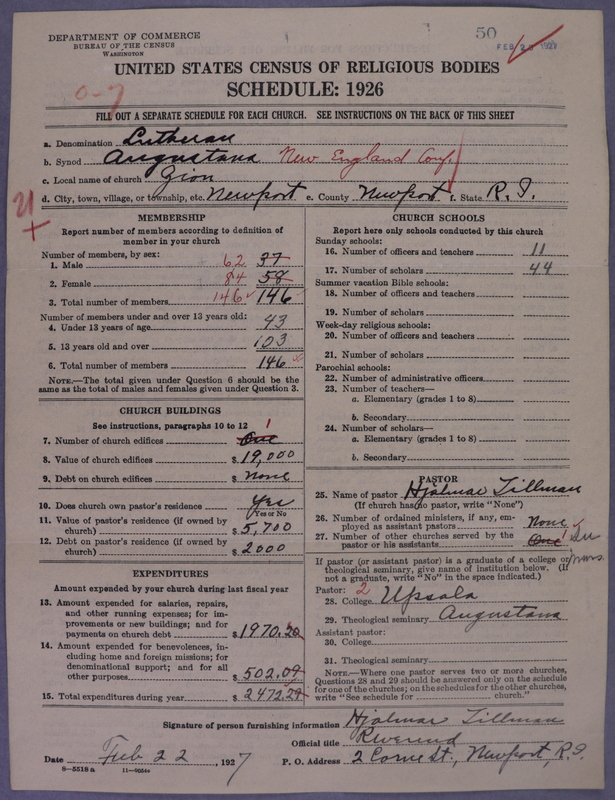 DEPARTMENT OF COMMERCE
BUREAU OF THE CENSUS
WASHINGTON
50
FEB 1927
UNITED STATES CENSUS OF RELIGIOUS BODIES
SCHEDULE: 1926
0-7
FILL OUT A SEPARATE SCHEDULE FOR EACH CHURCH. SEE INSTRUCTIONS ON THE BACK OF THIS SHEET
a. Denomination Lutheran
b. Synod Augustana New England Conf.
c. Local name of church Zion
d. City, town, village, or township, etc. Newport e. County Newport f. State R. I.
MEMBERSHIP
Report number of members according to definition of
member in your church
Number of members, by sex:
1. Male 62 37
2. Female 84 58
3. Total number of members 146 146
Number of members under and over 13 years old:
4. Under 13 years of age 43
5. 13 years old and over 103
6. Total number of members 146
NOTE.—The total given under Question 6 should be the
same as the total of males and females given under Question 3.
CHURCH BUILDINGS
See instructions, paragraphs 10 to 12
7. Number of church edifices One 1
8. Value of church edifices $ 19,000
9. Debt on church edifices $ None
10. Does church own pastor's residence? Yes
Yes or No
11. Value of pastor's residence (if owned by
church) $ 5,700
12. Debt on pastor's residence (if owned by
church) $ 2000
EXPENDITURES
Amount expended by your church during last fiscal year
13. Amount expended for salaries, repairs,
and other running expenses; for im-
provements or new buildings; and for
payments on church debt $ 1970.20
14. Amount expended for benevolences, in-
cluding home and foreign missions; for
denominational support; and for all
other purposes $ 502.09
15. Total expenditures during year $ 2472.29
CHURCH SCHOOLS
Report here only schools conducted by this church
Sunday schools:
16. Number of officers and teachers 11
17. Number of scholars 44
Summer vacation Bible schools:
18. Number of officers and teachers
19. Number of scholars
Week-day religious schools:
20. Number of officers and teachers
21. Number of scholars
Parochial schools:
22. Number of administrative officers
23. Number of teachers—
a. Elementary (grades 1 to 8)
b. Secondary
24. Number of scholars—
a. Elementary (grades 1 to 8)
b. Secondary
PASTOR
25. Name of pastor Hjalmar Tillman
(If church has no pastor, write "None")
26. Number of ordained ministers, if any, em-
ployed as assistant pastors None
27. Number of other churches served by the
pastor or his assistants One 1
If pastor (or assistant pastor) is a graduate of a college or
theological seminary, give name of institution below. (If
not a graduate, write "No" in the space indicated.)
Pastor: 2
28. College Upsala
29. Theological seminary Augustana
Assistant pastor:
30. College
31. Theological seminary
NOTE.—Where one pastor serves two or more churches,
Questions 28 and 29 should be answered only on the schedule
for one of the churches; on the schedules for the other churches,
write "See schedule for church."
Signature of person furnishing information Hjalmar Tillman
Official title Reverend
Date Feb 22, 1927 P. O. Address 2 Corne St., Newport, R. I.
8—5518 a